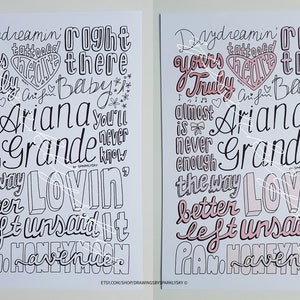 Daydreamin'
tattooed
heart
right
there
Yours
Truly
Baby I
Ariana
Grande
you'll
never
know
BY SPARKLYSKY
the way
LOVIN'
it
better
left unsaid
PIANO
HONEYMOON
avenue
Daydreamin'
tattooed
heart
right
there
Yours
Truly
Baby I
almost
is
never
enough
Ariana
Grande
the way
LOVIN'
better
left unsaid
PIANO
HONEYMOON
avenue
ETSY.COM/SHOP/DRAWINGSBYSPARKLYSKY ©